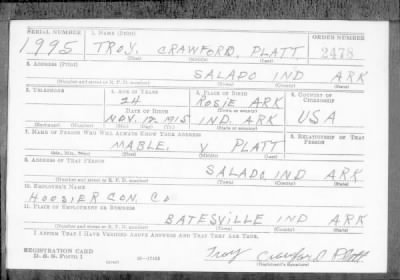 SERIAL NUMBER 1. NAME (Print) ORDER NUMBER
1995 TROY, CRAWFORD, PLATT 2478
(First) (Middle) (Last)
2. ADDRESS (Print)
SALADO IND ARK
(Number and street or R. F. D. number) (Town) (County) (State)
3. TELEPHONE 4. AGE IN YEARS 5. PLACE OF BIRTH 6. COUNTRY OF CITIZENSHIP
24 ROSIE ARK
DATE OF BIRTH (Town or county)
NOV. 12. 1915 IND. ARK USA
(Exchange) (Number) (Mo.) (Day) (Yr.) (State or country)
7. NAME OF PERSON WHO WILL ALWAYS KNOW YOUR ADDRESS 8. RELATIONSHIP OF THAT PERSON
MABLE. V PLATT
(Mr., Mrs., Miss) (First) (Middle) (Last)
9. ADDRESS OF THAT PERSON
SALADO, IND ARK
(Number and street or R. F. D. number) (Town) (County) (State)
10. EMPLOYER'S NAME
HOOSIER CON. CO
11. PLACE OF EMPLOYMENT OR BUSINESS
BATESVILLE IND ARK
(Number and street or R. F. D. number) (Town) (County) (State)
I AFFIRM THAT I HAVE VERIFIED ABOVE ANSWERS AND THAT THEY ARE TRUE.
REGISTRATION CARD
D. S. S. FORM 1 Troy Crawford Platt
(over) (Registrant's signature)